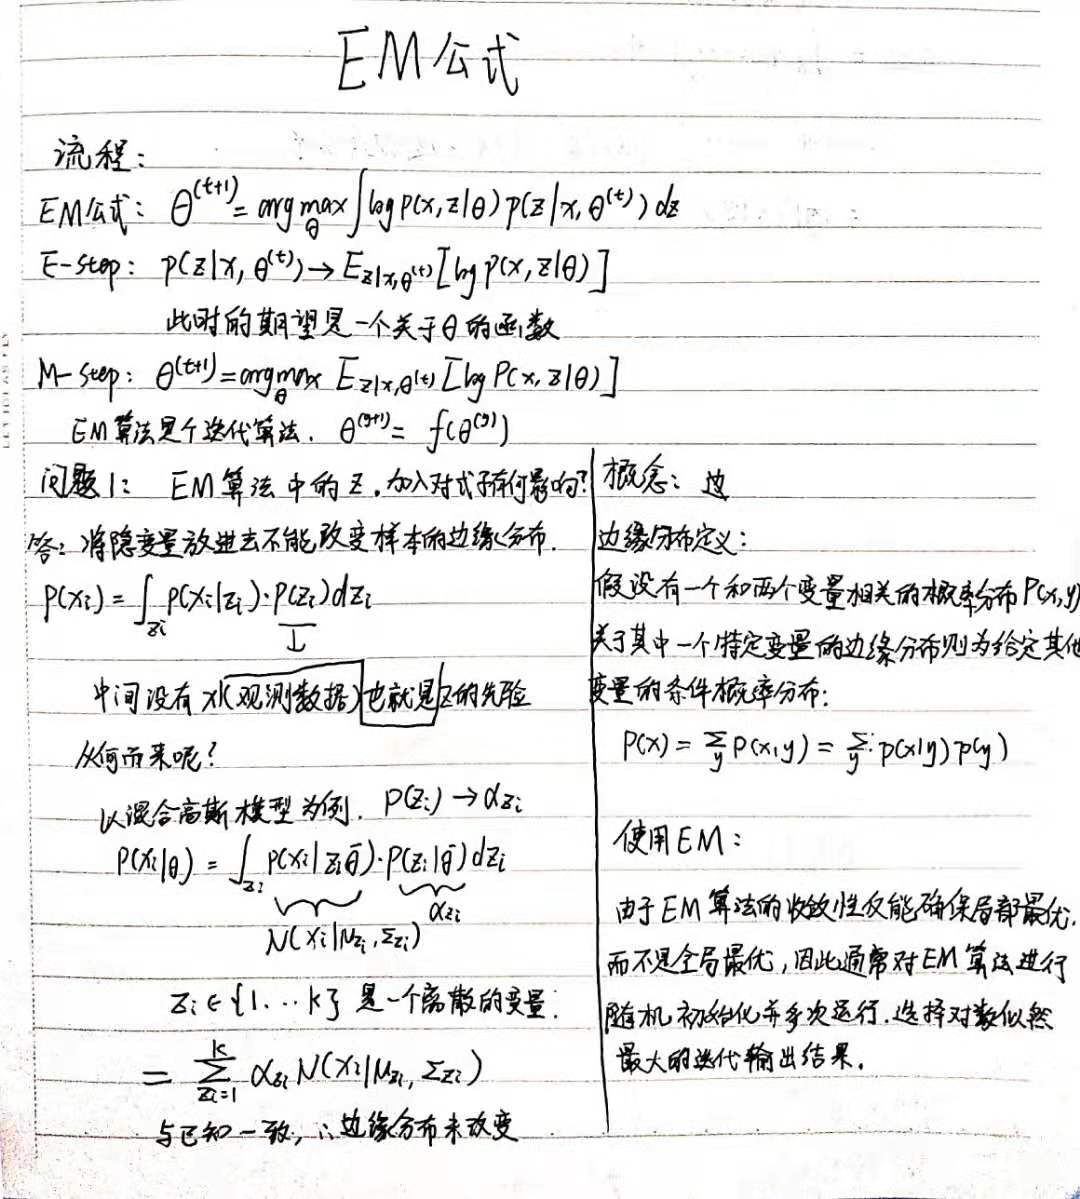 EM公式
流程：
EM公式：θ^(t+1) = argmax_θ ∫ log P(x,z|θ) P(z|x,θ^(t)) dz
E-step：P(z|x,θ^(t)) → E_{z|x,θ^(t)} [log P(x,z|θ)]
此时的期望是一个关于θ的函数
M-step：θ^(t+1) = argmax_θ E_{z|x,θ^(t)} [log P(x,z|θ)]
EM算法是个迭代算法. θ^(g+1) = f(θ^(g))
问题1： EM算法中的Z，加入对式子有何影响？
答：将隐变量放进去不能改变样本的边缘分布.
P(xi) = ∫_{zi} P(xi|zi)·P(zi) dzi
↓
中间没有x(观测数据)也就是z的先验
从何而来呢？
以混合高斯模型为例. P(zi) → α_{zi}
P(xi|θ) = ∫_{zi} P(xi|zi θ)·P(zi|θ) dzi
N(xi|μ_{zi}, Σ_{zi}) α_{zi}
zi ∈ {1...k} 是一个离散的变量：
= Σ_{zi=1}^{k} α_{zi} N(xi|μ_{zi}, Σ_{zi})
与已知一致，∴边缘分布未改变
概念：边
边缘分布定义：
假设有一个和两个变量相关的概率分布P(x,y)
关于其中一个特定变量的边缘分布则为给定其他
变量的条件概率分布：
P(x) = Σ_y P(x,y) = Σ_y P(x|y) P(y)
使用EM：
由于EM算法的收敛性仅能确保局部最优.
而不是全局最优，因此通常对EM算法进行
随机初始化并多次运行.选择对数似然
最大的迭代输出结果.